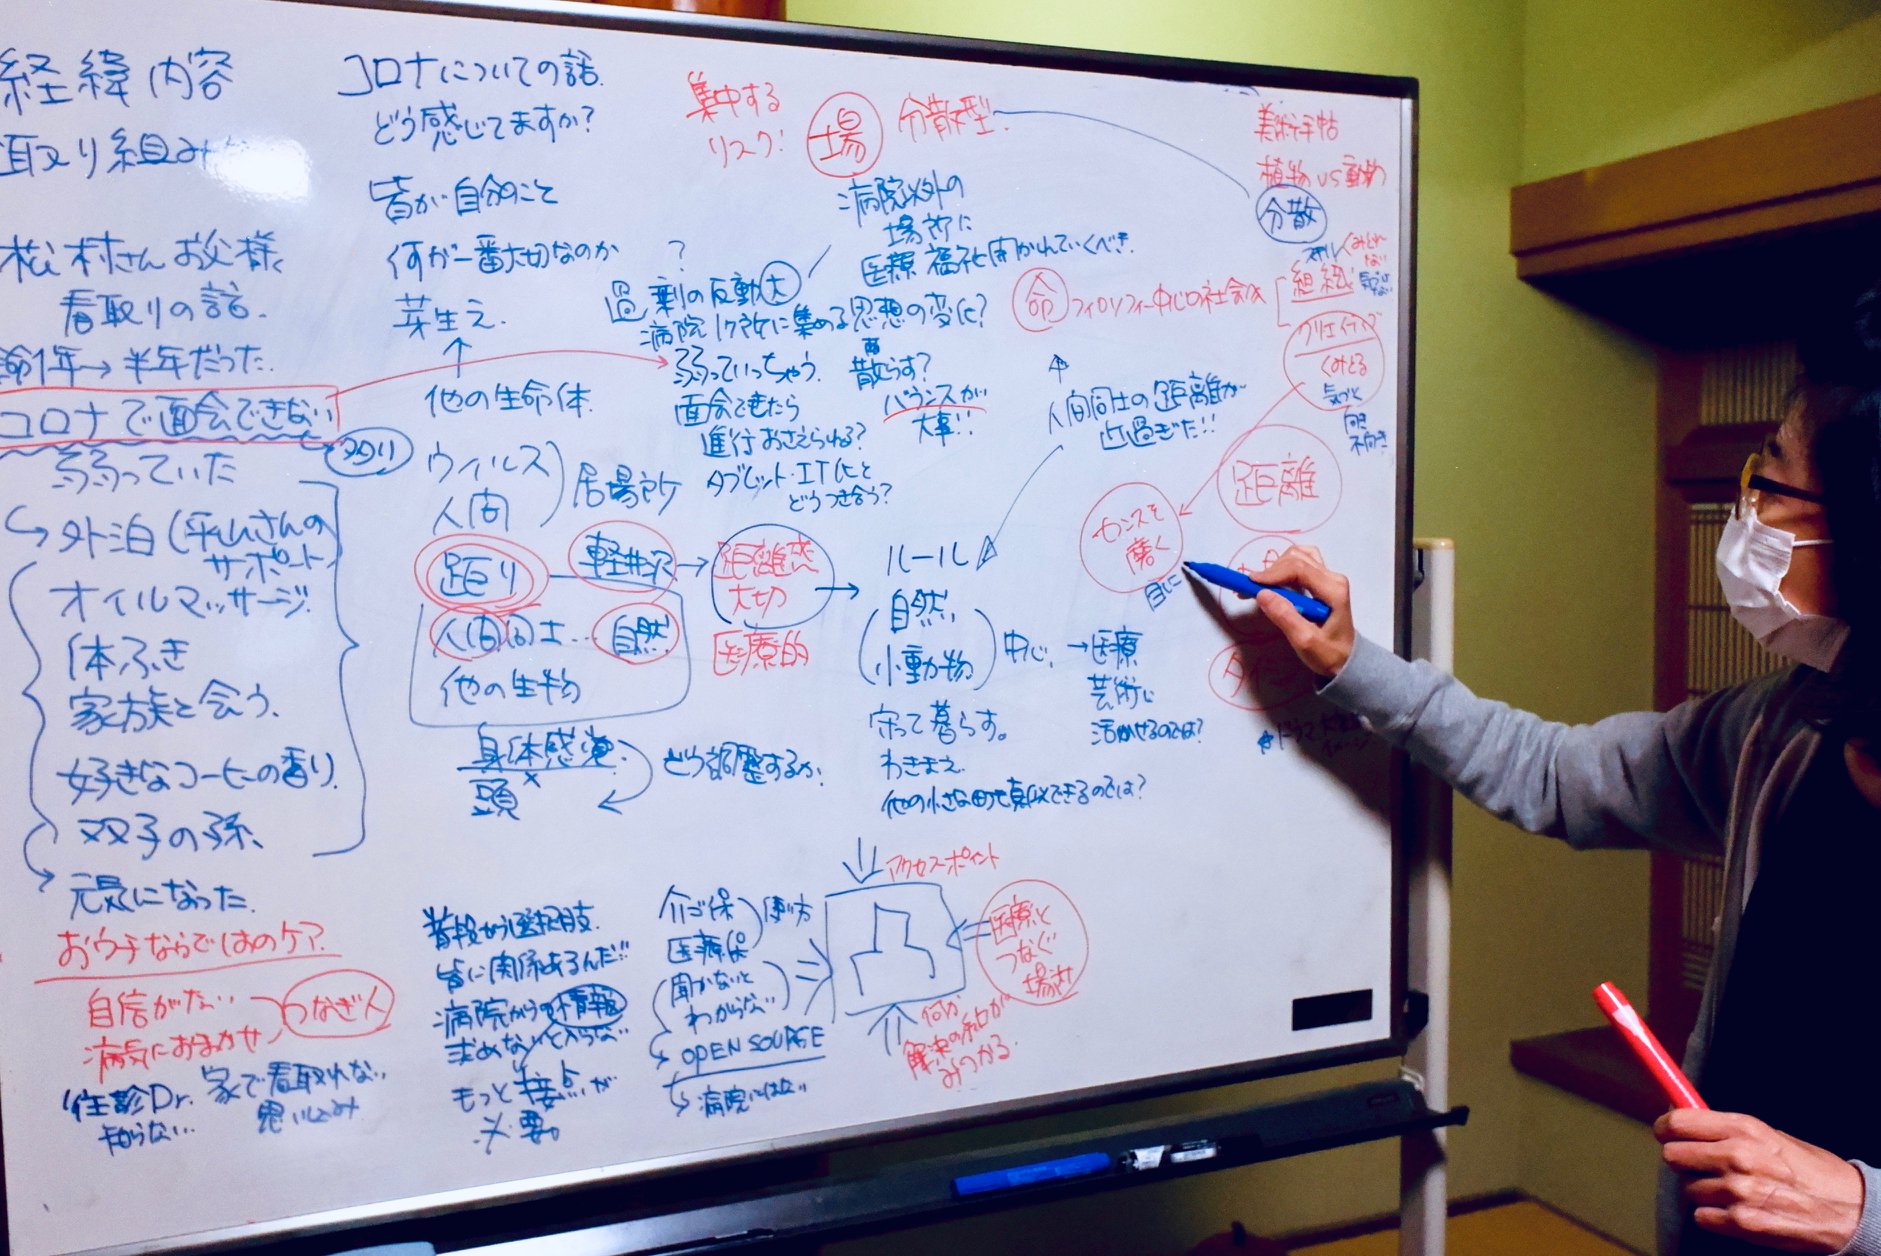 経緯内容
取り組み
松村さんお父様、
看取りの話.
余命1年→半年だった.
コロナで面会できない
弱っていた
外泊(平山さんの
サポート
オイルマッサージ.
体ふき
家族と会う.
好きなコーヒーの香り.
双子の孫、
元気になった.
おウチならではのケア.
自信がない
病気におまかせ
つなぎ人
往診Dr.
知らない…
家で看取れない
思い込み
コロナについての話.
どう感じてますか?
皆が自分のこと
何が一番大切なのか
芽生え.
↑
他の生命体.
ウイルス
人間
居場所
距り
軽井沢
人間同士…
自然
他の生物
身体感覚.
×
頭
どう調整するか.
距離感
大切
医療的
普段から選択肢.
皆に関係あるんだ!!
病院からの情報
求めないと入らない
もっと接点が
必要。
集中する
リスク!
場
分散型.
病院以外の
場所に
医療福祉開かれていくべき.
?
過剰の反動大
病院1ヶ所に集める思想の変化?
弱っていっちゃう.
面会できたら
進行おさえられる?
タブレット・IT化と
どうつき合う?
散らす?
バランスが
大事!!
ルール
自然
小動物
中心.
→医療
芸術に
活かせるのでは?
守って暮らす。
わきまえ.
他の小さな町も真似できるのでは?
介ゴ保
医療保
使い方
聞かないと
わからない
OPEN SOURCE
病院にはない
アクセスポイント
医療と
つなぐ
場所
何か
解決の糸口が
みつかる.
美術手帖
植物VS動物
分散
命
フィロソフィー中心の社会は
組織
クリエイティブ
くみとる
気づく
向き
不向き
人間同士の距離が
近過ぎた!!
距離
センスを
磨く